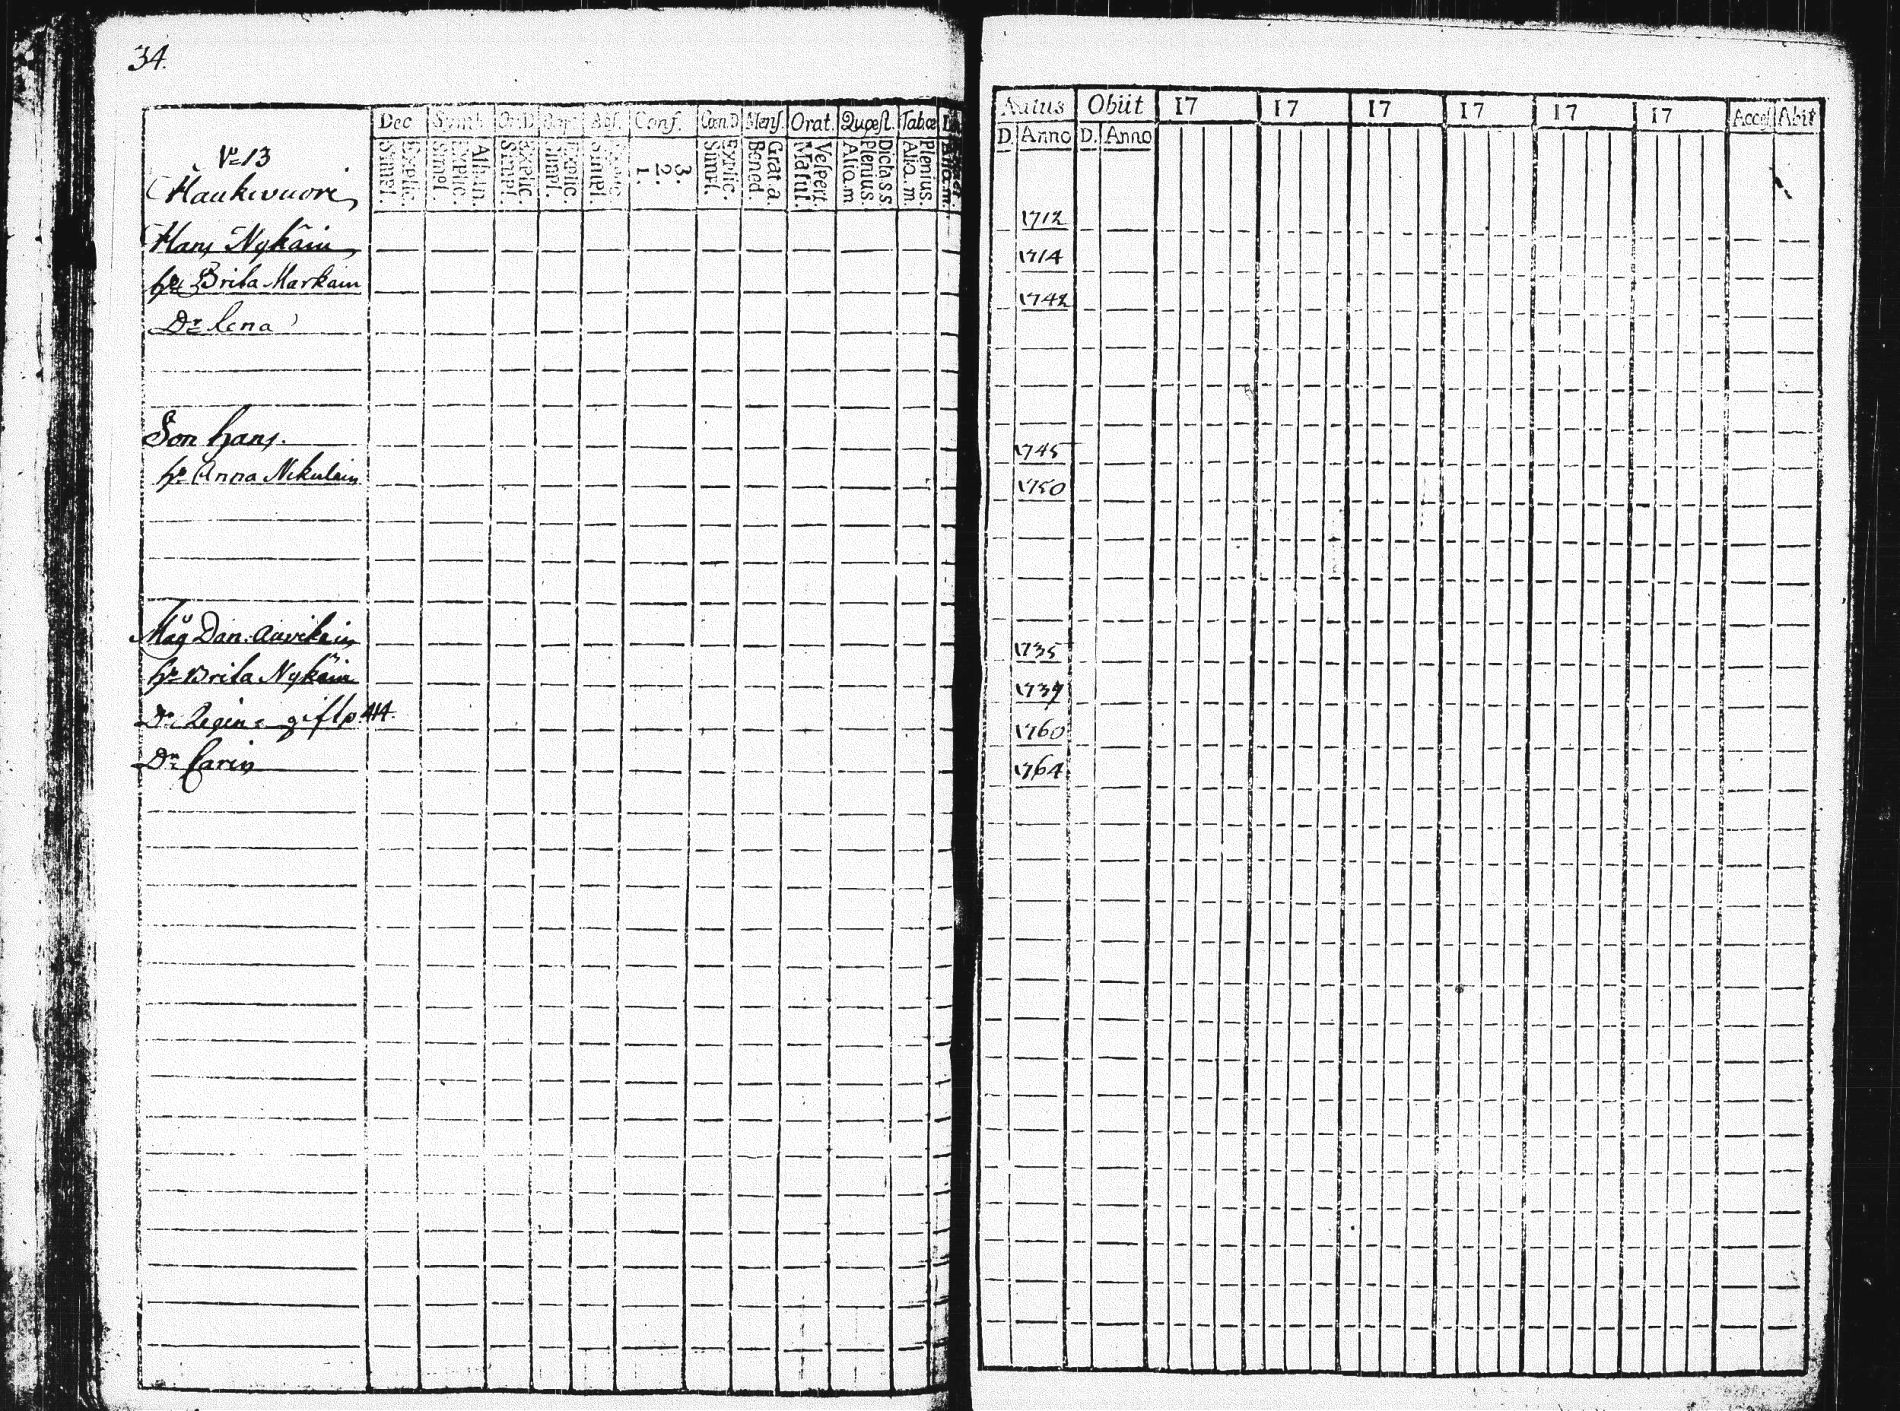 34.
Dec. Symb. Or.D. Bapt. Abs. Conf. Cœn.D Mens. Orat. Quæst. Tabœ
Natus Obiit 17 17 17 17 17 17 Acces. Abit
D. Anno D. Anno
Simpl. Explic. Simpl. Explic. Athan. Simpl. Explic. Simpl. Explic. Simpl. 1. 2. 3. Simpl. Explic. Bened. Grat. a. Matut. Vespert. Aliq.m Plenius. Dicta s.s. Aliq.m. Plenius.
No 13
Haukivuori
Hans Nykäin 1712
hu Brita Markain 1714
Dr Lena 1742
Son Hans. 1745
hu Anna Nikulain 1750
Måg Dan. Auvikain 1735
hu Brita Nykäin 1739
Dr Regina gift p 414. 1760
Dr Carin 1764